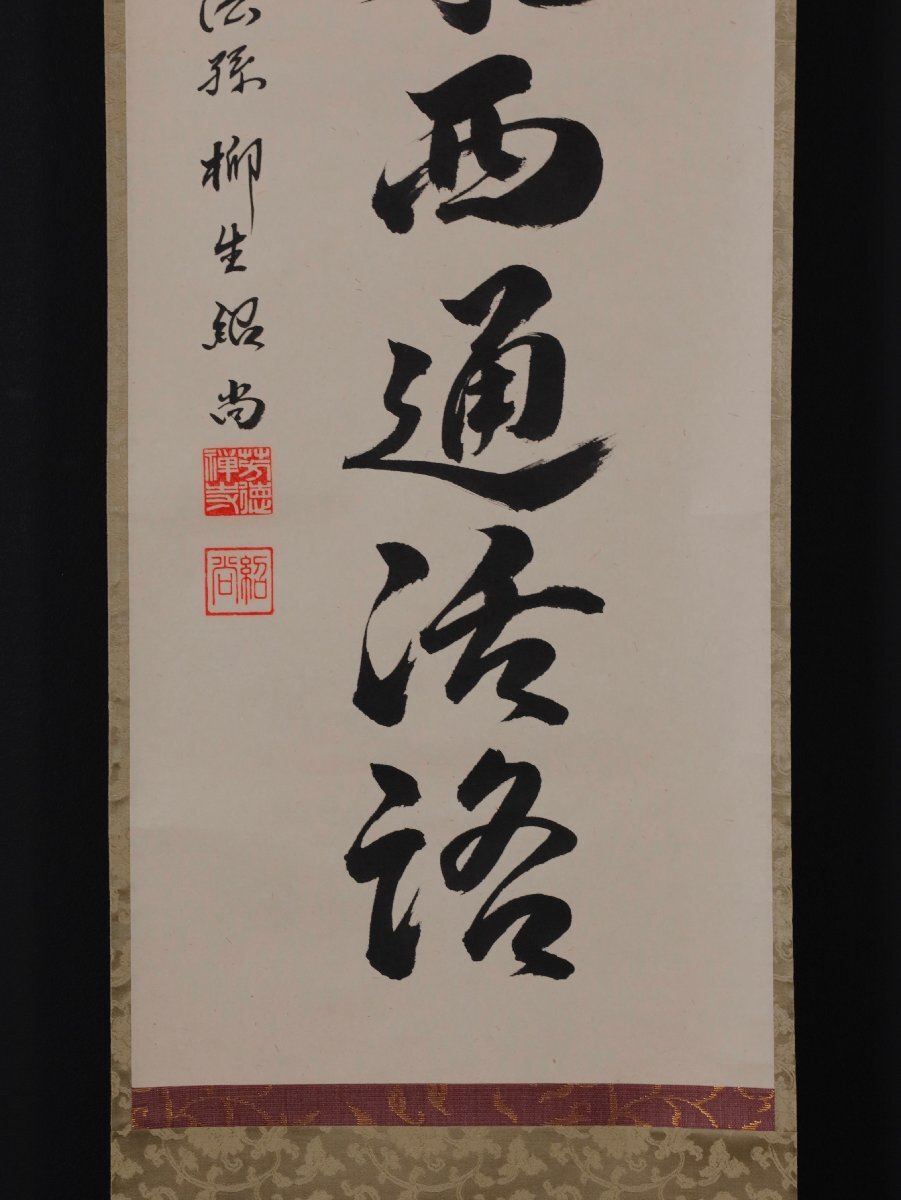 西通活路
法孫 柳生紹尚
芳徳禅寺
紹尚